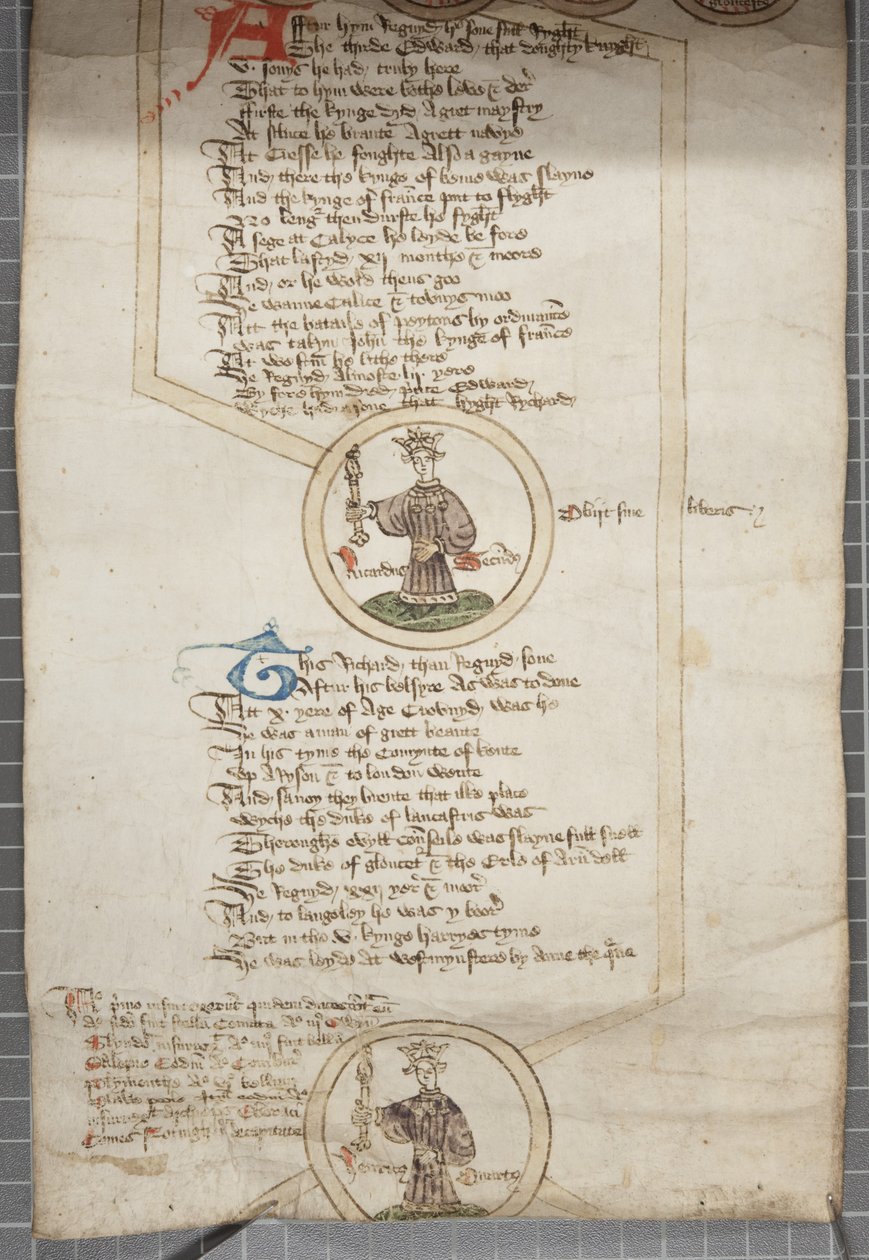 gloucestre
Afftur hym Regnyd hys sone full Ryght
The thirde Edward that doughty knyght
v. sonys he had truly here
That to hym were bothe leve & der
ffirste the kynge dyd A gret maystry
At sluce he brante A grett navye
At Cresse he foughte Also a gayne
And there the kynge of beme was slayne
And the kynge of fraunce put to flyght
No lenger then durste he fyght
A sege at Calyce he leyde be fore
That lastyd xij monthes & moore
And or he wold thens goo
He wanne Calice & townys moo
Att the bataile of peytens by ordinaunce
was takyn John the kynge of fraunce
At westm he lithe there
He Regnyd Almoste lij yere
By fore hym dyed prince Edward
Wyche had a sone that hyght Rychard
Obijt sine liberis
Ricardus Secundus
This Richard than Regnyd sone
Aftur his belsyre As was to done
Att x yere of Age Crownyd was he
He was a man of grett beaute
In his tyme the Comynte of kente
Up Aryson & to london wente
And savoy they brente that ilke place
Wyche the duke of lancastris was
Thoroughe evyll counseile was slayne full snell
The duke of gloucetr & the Erle of Arundell
He Regnyd xxij yer & moor
And to langeley he was y boor
But in the v. kynge harryes tyme
He was leyde At westmynstere by Anne the quene
stella Comata
Glyndor
bellum
Comes
Henricus Quartus